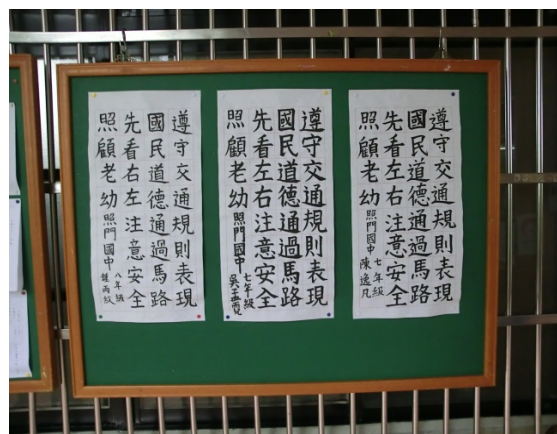 遵守交通規則表現
國民道德通過馬路
先看左右注意安全
照顧老幼
照門國中
七年級
陳逸凡
遵守交通規則表現
國民道德通過馬路
先看左右注意安全
照顧老幼
照門國中
七年級
遵守交通規則表現
國民道德通過馬路
先看右左注意安全
照顧老幼
照門國中
八年級